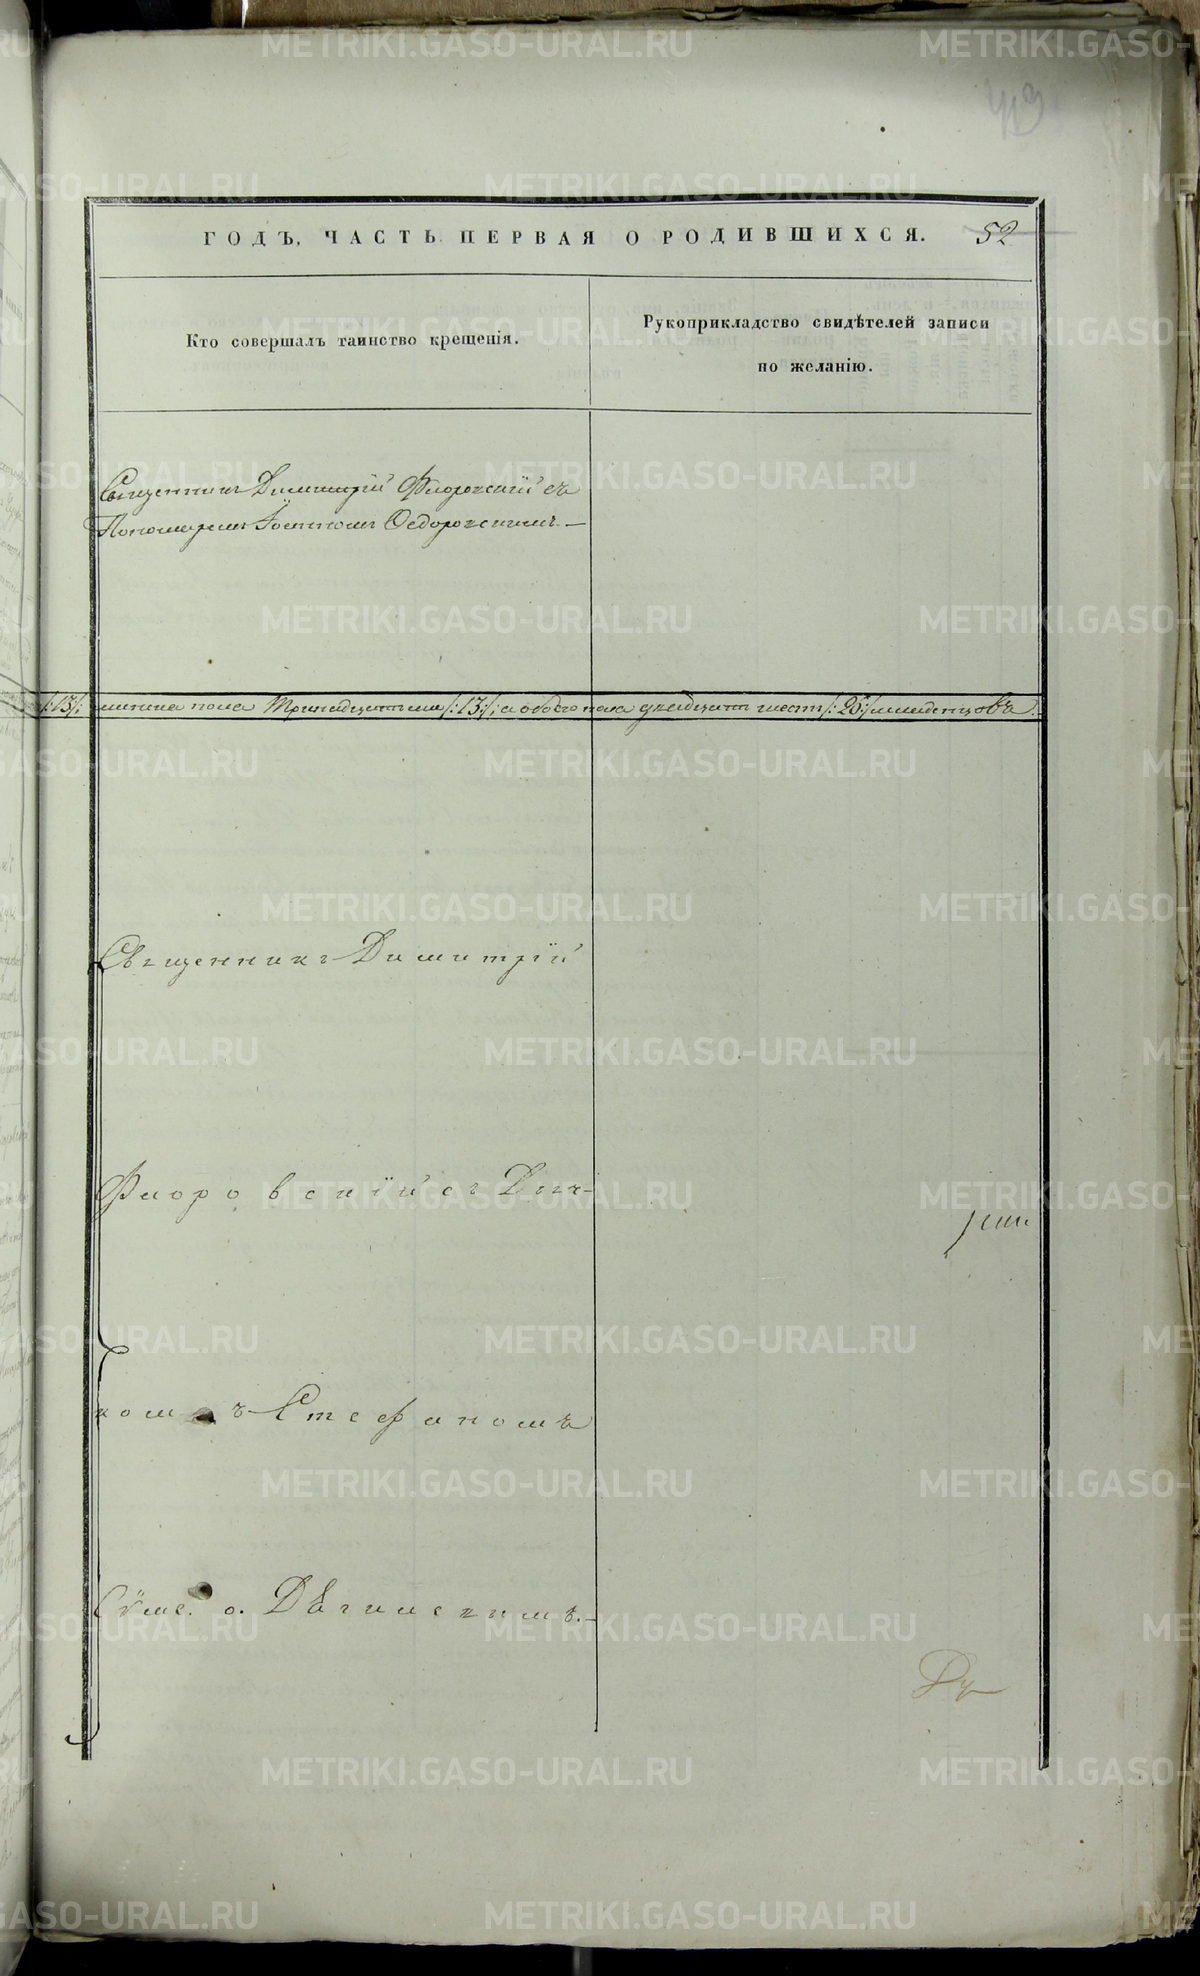 ГОДЪ, ЧАСТЬ ПЕРВАЯ О РОДИВШИХСЯ. 52
Кто совершалъ таинство крещенія.
Рукоприкладство свидѣтелей записи
по желанію.
Священникъ Димитрій Флоровскій съ
Пономаремъ Іоанномъ Ѳедоровскимъ. —
/:13/: женска пола тринадцать /:13:/, а обоего пола двадцать шесть /:26:/ младенцовъ.
Священникъ Димитрій
Флоровскій съ Дья-
комъ Стефаномъ
METRIKI.GASO-URAL.RU